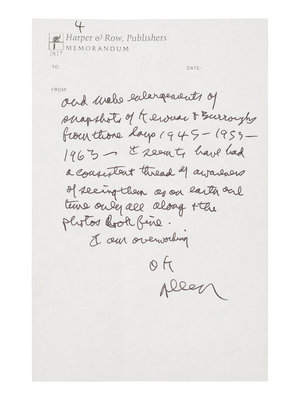 4
Harper & Row, Publishers
1817
MEMORANDUM
TO
DATE:
FROM
and make enlargements of
snapshots of Kerouac & Burroughs
from those days 1945–1953–
1963 – I seem to have had
a consistent thread of awareness
of seeing them as on earth one
time only all along & the
photos look fine.
I am overworking
OK
Allen